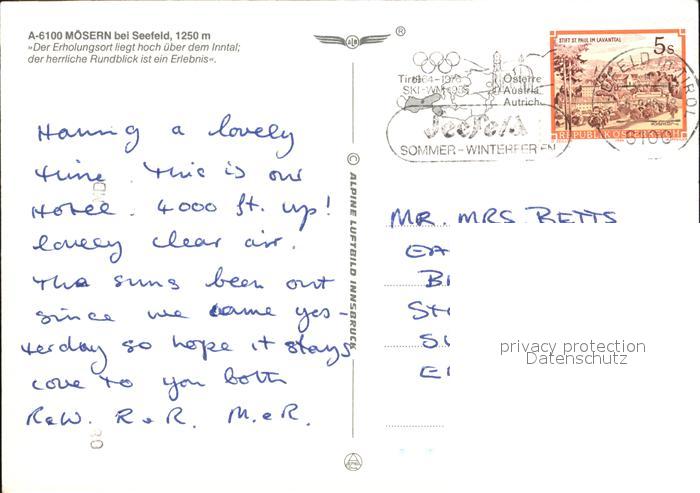 A-6100 MÖSERN bei Seefeld, 1250 m
»Der Erholungsort liegt hoch über dem Inntal;
der herrliche Rundblick ist ein Erlebnis«.
®
Tirol 64-1976
SKI-WM 1985
Österre
Austria
Autrich
Seefeld
SOMMER-WINTERFERIEN
STIFT ST. PAUL IM LAVANTTAL
5s
REPUBLIK ÖSTERREICH
6100
Having a lovely
time. This is our
Hotel. 4000 ft. up!
lovely clear air.
The suns been out
since we came yes-
terday so hope it stays
love to you both
R&W. R&R. M&R.
© ALPINE LUFTBILD INNSBRUCK
MR. MRS BETTS
EA
BI
St
SU
EI
privacy protection
Datenschutz